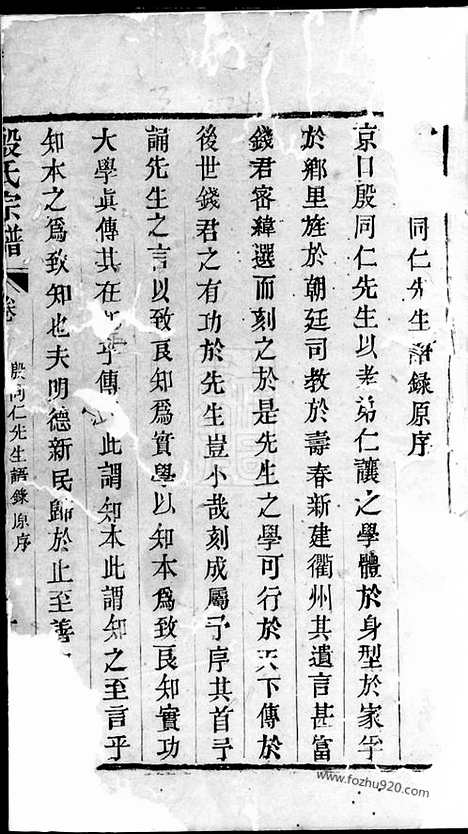 同仁先生語錄原序
京口殷同仁先生以孝弟仁讓之學體於身型於家孚
於鄉里旌於朝廷司教於壽春新建衢州其遺言甚富
錢君密緯選而刻之於是先生之學可行於天下傳於
後世錢君之有功於先生豈小哉刻成屬予序其首予
誦先生之言以致良知爲實學以知本爲致良知實功
大學眞傳其在 乎傳 此謂知本此謂知之至言乎
知本之爲致知也夫明德新民歸於止至善
殷氏宗譜
卷
殷同仁先生語錄原序
www.fozhu920.com